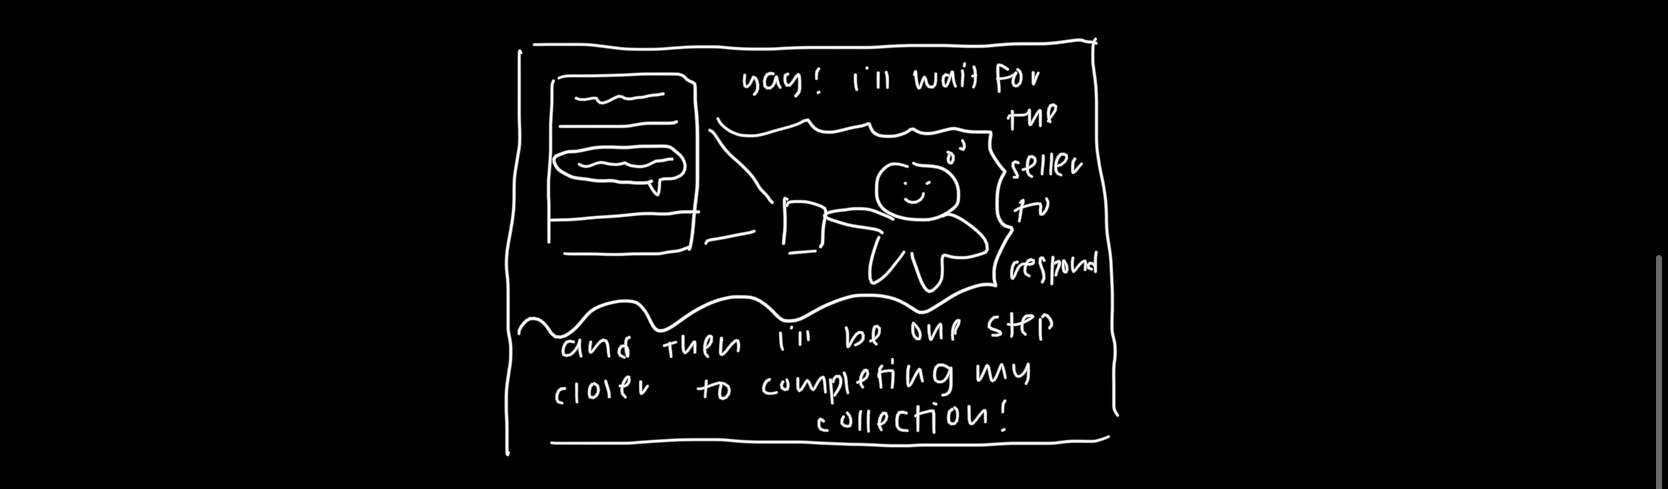 yay! i'll wait for
the
seller
to
respond
and then i'll be one step
closer to completing my
collection!